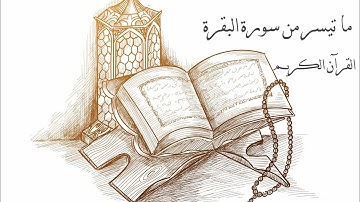 ما تيسر من سورة البقرة
القرآن الكريم